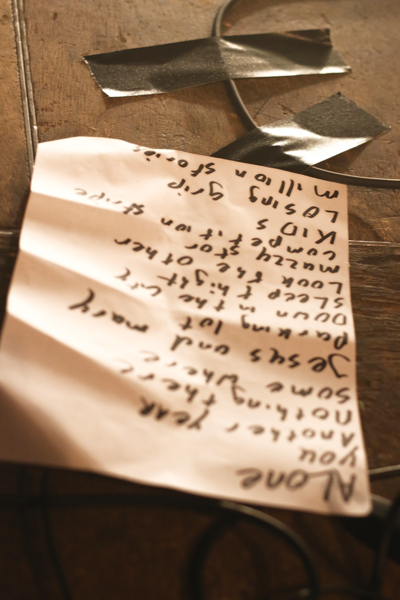 ALONE
you
Another year
Nothing there
some where
Jesys and mary
Parking lot
Down in the
SLeep thight
Look the other
muzzy stor
competition stripe
KIDS
Losing grip
million stories